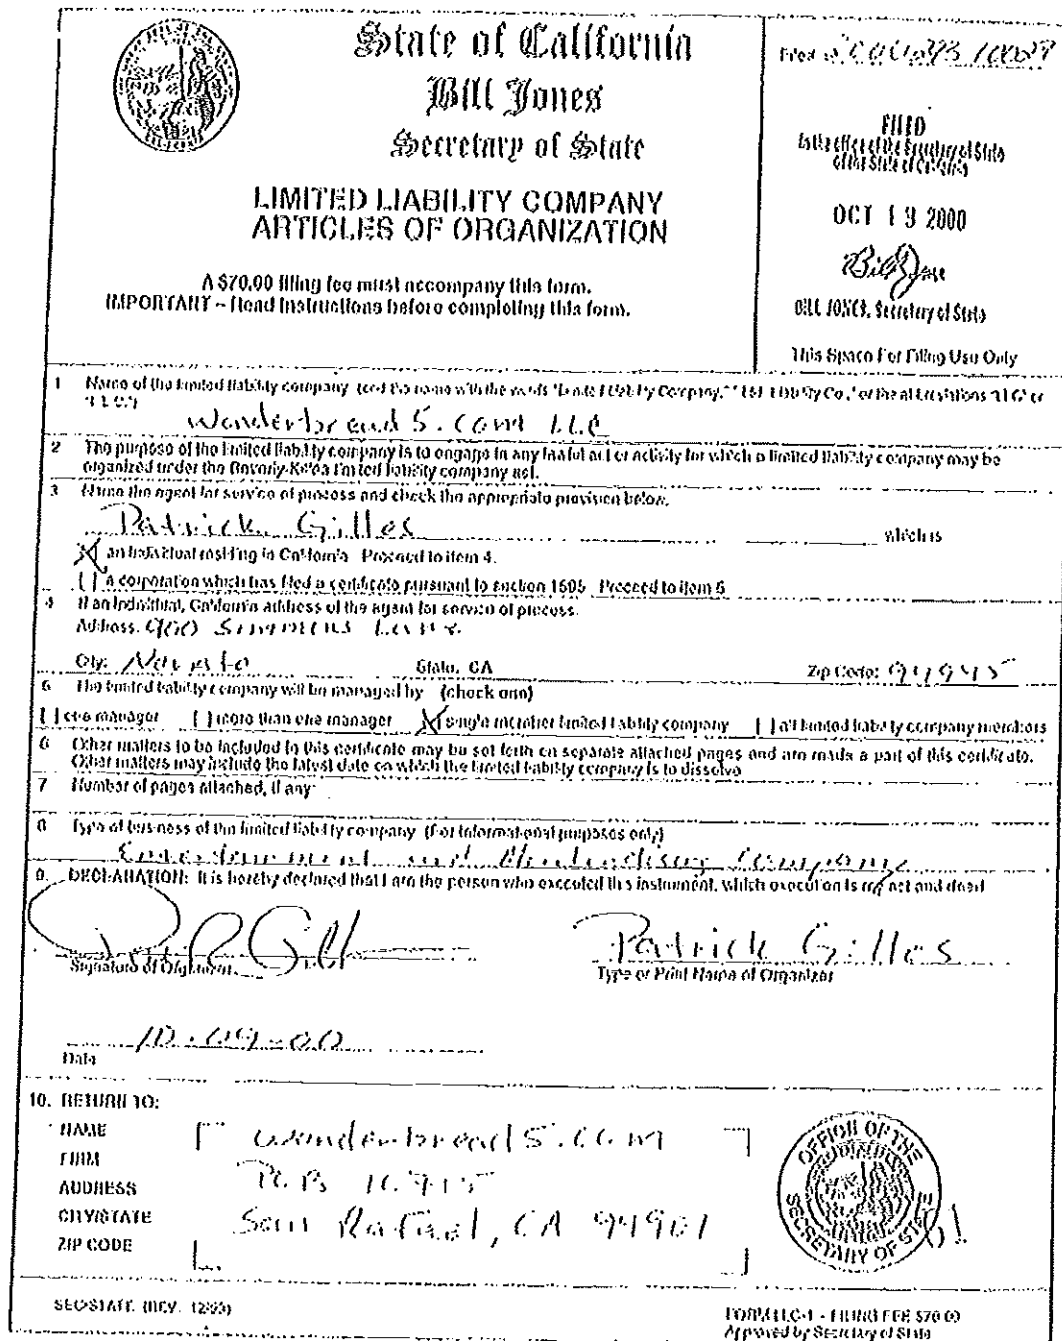 State of California
Bill Jones
Secretary of State
LIMITED LIABILITY COMPANY
ARTICLES OF ORGANIZATION
A $70.00 filing fee must accompany this form.
IMPORTANT – Read instructions before completing this form.
FILED
In the office of the Secretary of State
of the State of California
OCT 19 2000
BILL JONES, Secretary of State
This Space For Filing Use Only
1 Name of the limited liability company (end the name with the words
wonderbread 5.com LLC
2 The purpose of the limited liability company is to engage in any lawful act or activity for which a limited liability company may be
organized under the Beverly-Killea limited liability company act.
3 Name the agent for service of process and check the appropriate provision below.
Patrick Gilles which is
[X] an individual residing in California. Proceed to item 4.
[ ] a corporation which has filed a certificate pursuant to section 1505. Proceed to item 5.
4 If an individual, California address of the agent for service of process.
Address: 900 Simmons Lane
City: Novato State: CA Zip Code: 94945
5 The limited liability company will be managed by (check one)
[ ] one manager [ ] more than one manager [X] single member limited liability company [ ] all limited liability company members
6 Other matters to be included in this certificate may be set forth on separate attached pages and are made a part of this certificate.
Other matters may include the latest date on which the limited liability company is to dissolve
7 Number of pages attached, if any:
8 Type of business of the limited liability company (For informational purposes only)
Entertainment and Merchandising Company
9. DECLARATION: It is hereby declared that I am the person who executed this instrument, which execution is my act and deed
Patrick Gilles
Signature of Organizer Type or Print Name of Organizer
10-09-00
Date
10. RETURN TO:
NAME wonderbread5.com
FIRM
ADDRESS
CITY/STATE San Rafael, CA 94901
ZIP CODE
OFFICE OF THE
SECRETARY OF STATE
SEC/STATE (REV. 12/99) FORM LLC-1 - FILING FEE $70.00
Approved by Secretary of State